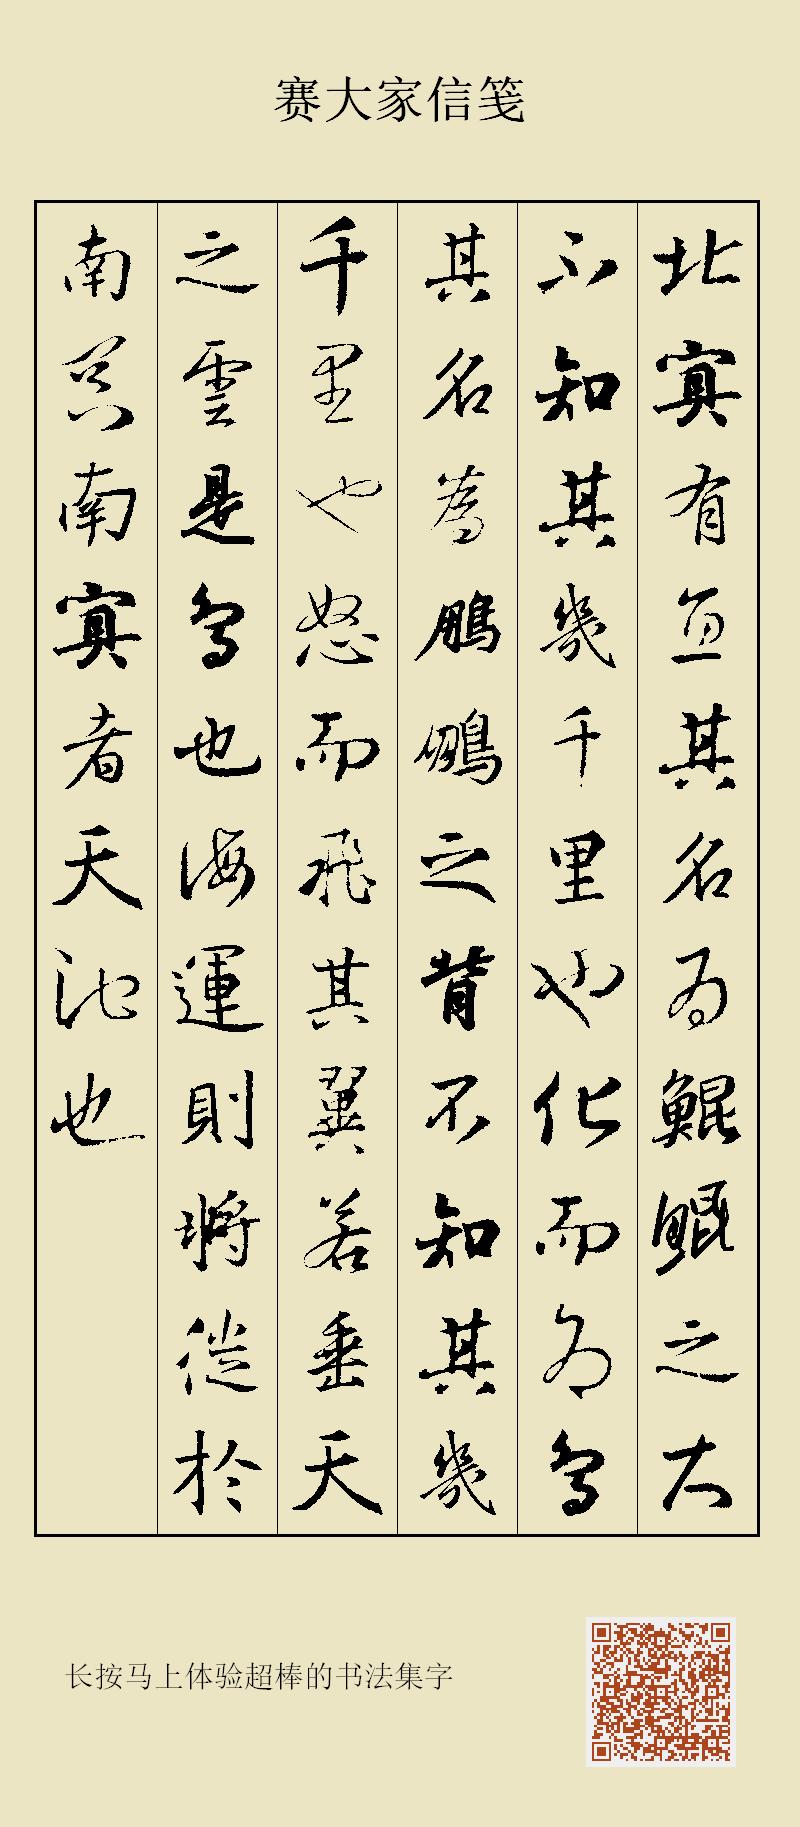 赛大家信笺
北冥有鱼其名為鯤鯤之大
不知其幾千里也化而為鳥
其名為鵬鵬之背不知其幾
千里也怒而飛其翼若垂天
之雲是鳥也海運則將徙於
南冥南冥者天池也
长按马上体验超棒的书法集字